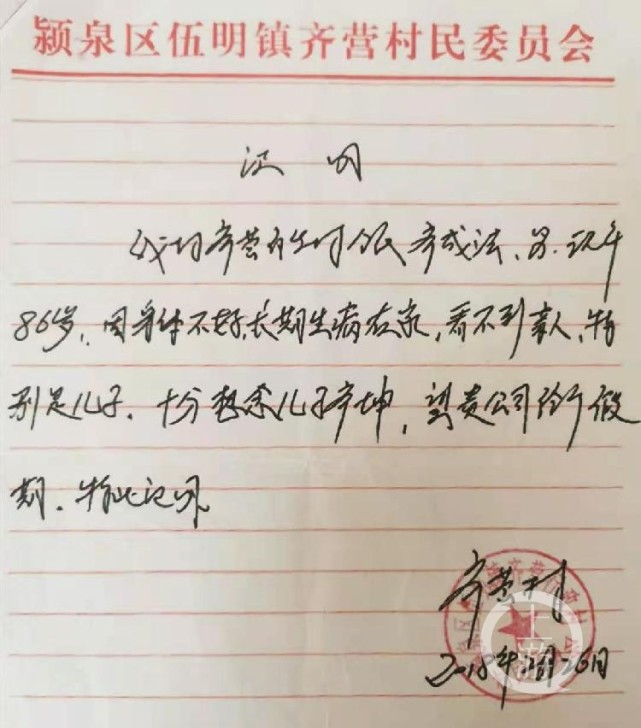 颍泉区伍明镇齐营村民委员会
证 明
我村齐营自然村人民齐成法、男、现年
86岁，因身体不好，长期生病在家，看不到亲人，特
别是儿子，十分想念儿子齐坤，望贵公司给个假
期。特此证明。
齐营村
2018年 月26日
上游